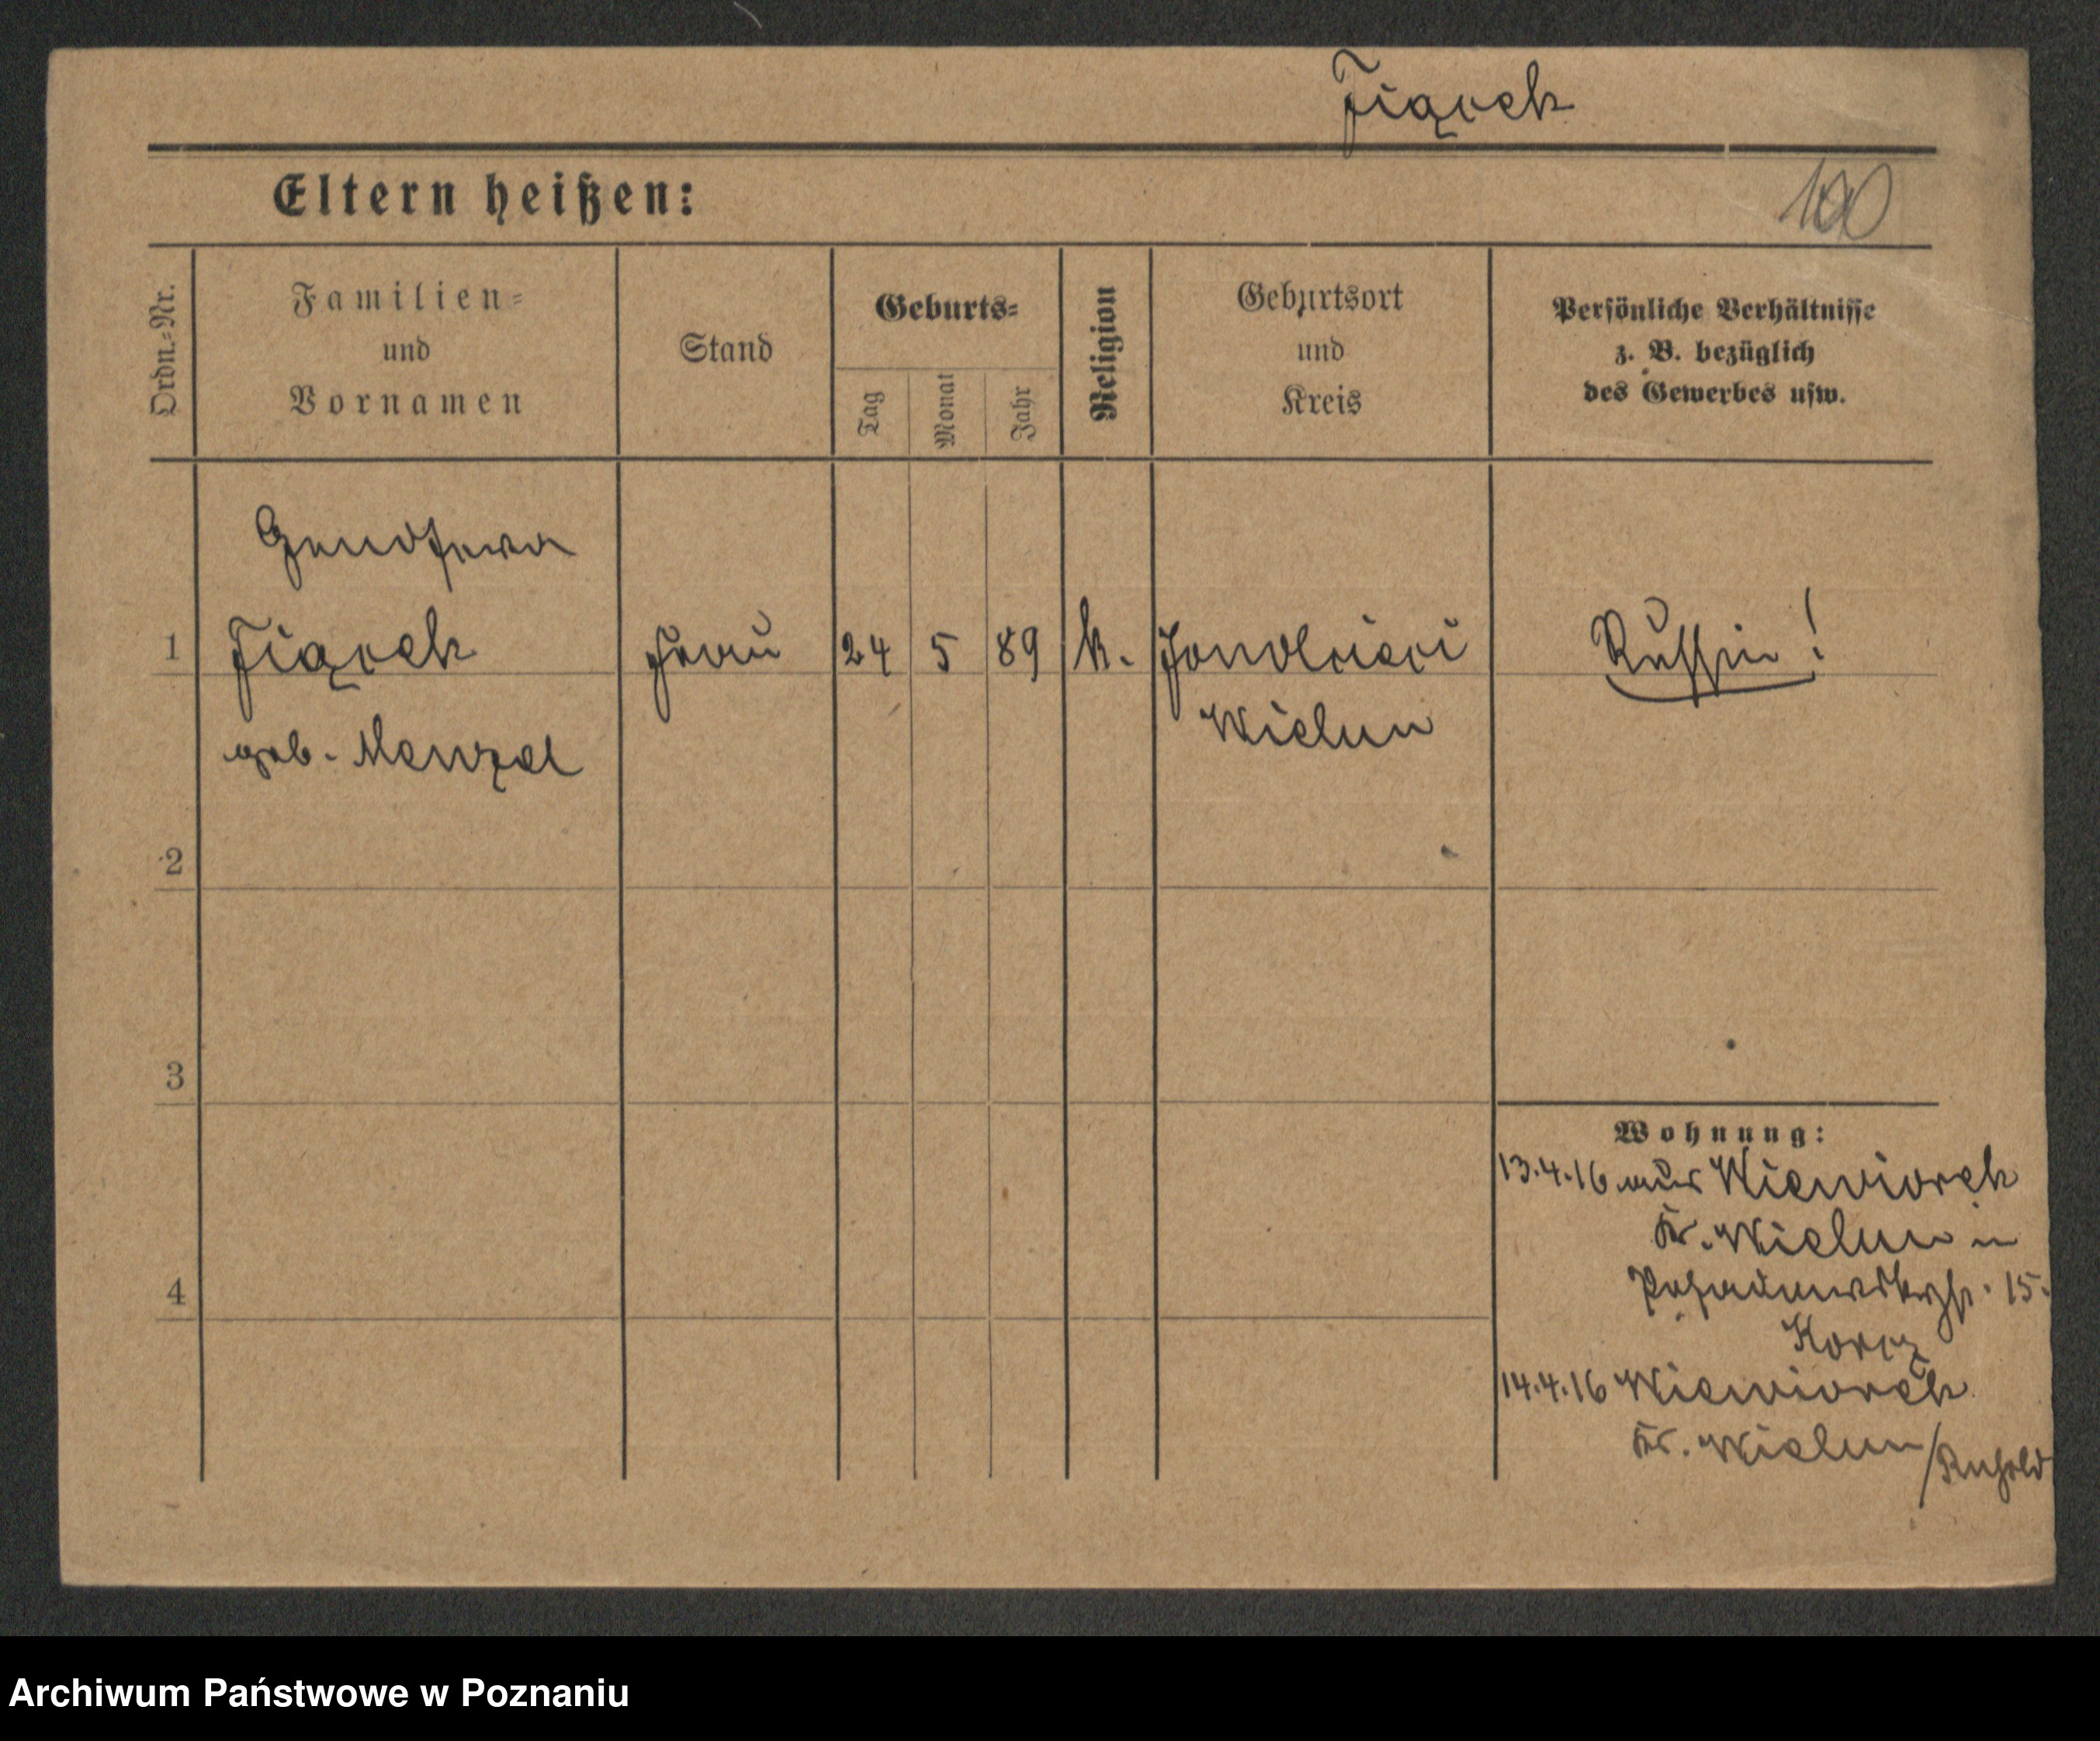 Fiącek
Eltern heißen:
100
Ordn.=Nr.
Familien=
und
Vornamen
Stand
Geburts=
Tag
Monat
Jahr
Religion
Geburtsort
und
Kreis
Persönliche Verhältnisse
z. B. bezüglich
des Gewerbes usw.
Genofewa
1 Fiącek Frau 24 5 89 k. Russin!
geb. Menzel
Wielun
2
3
4
Wohnung:
13.4.16 aus Wiewiorek
Kr. Wielun in
15.
14.4.16 Wiewiorek
Kr. Wielun / Rußld
Archiwum Państwowe w Poznaniu